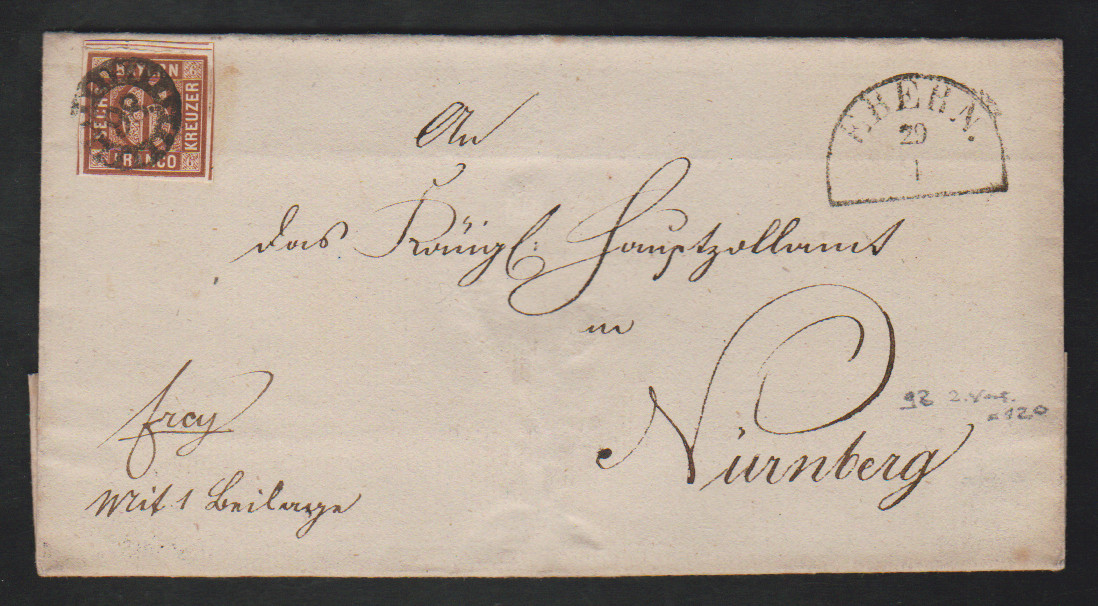 BAYERN
SECHS
KREUZER
FRANCO
6
EBERN.
29
1
An
das Königl: Hauptzollamt
in
Nürnberg
frey
Mit 1 Beilage
92 2. 
=120